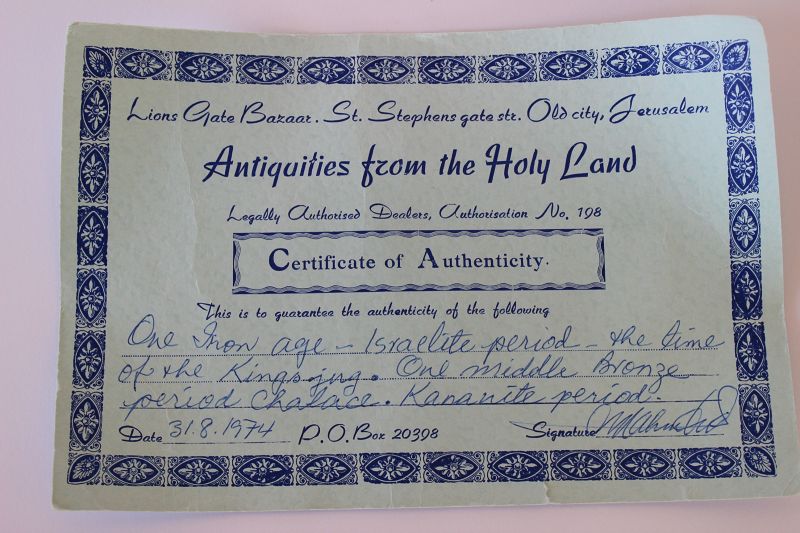 Lions Gate Bazaar. St. Stephens gate str. Old city, Jerusalem
Antiquities from the Holy Land
Legally Authorised Dealers, Authorisation No. 198
Certificate of Authenticity.
This is to guarantee the authenticity of the following
One Iron age - Israelite period - the time
of the Kings jug. One middle Bronze
period Chalace. Kananite period.
Date 31.8.1974 P.O.Box 20398 Signature